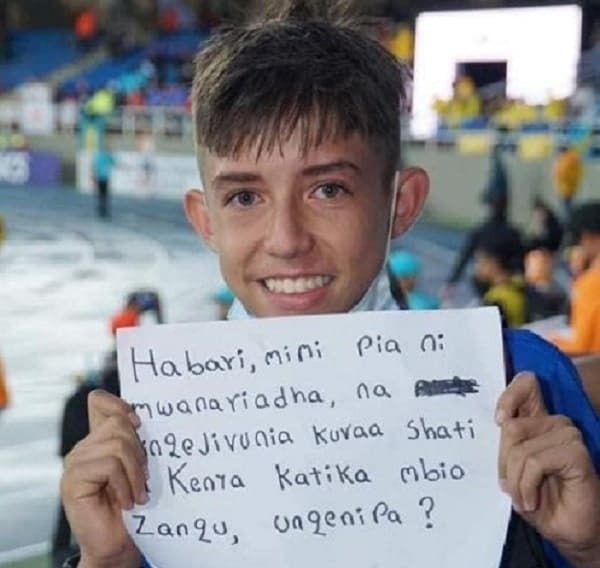 Habari, mimi pia ni
mwanariadha, na
ingeJivunia kuvaa shati
Kenya katika mbio
zangu, ungenipa?